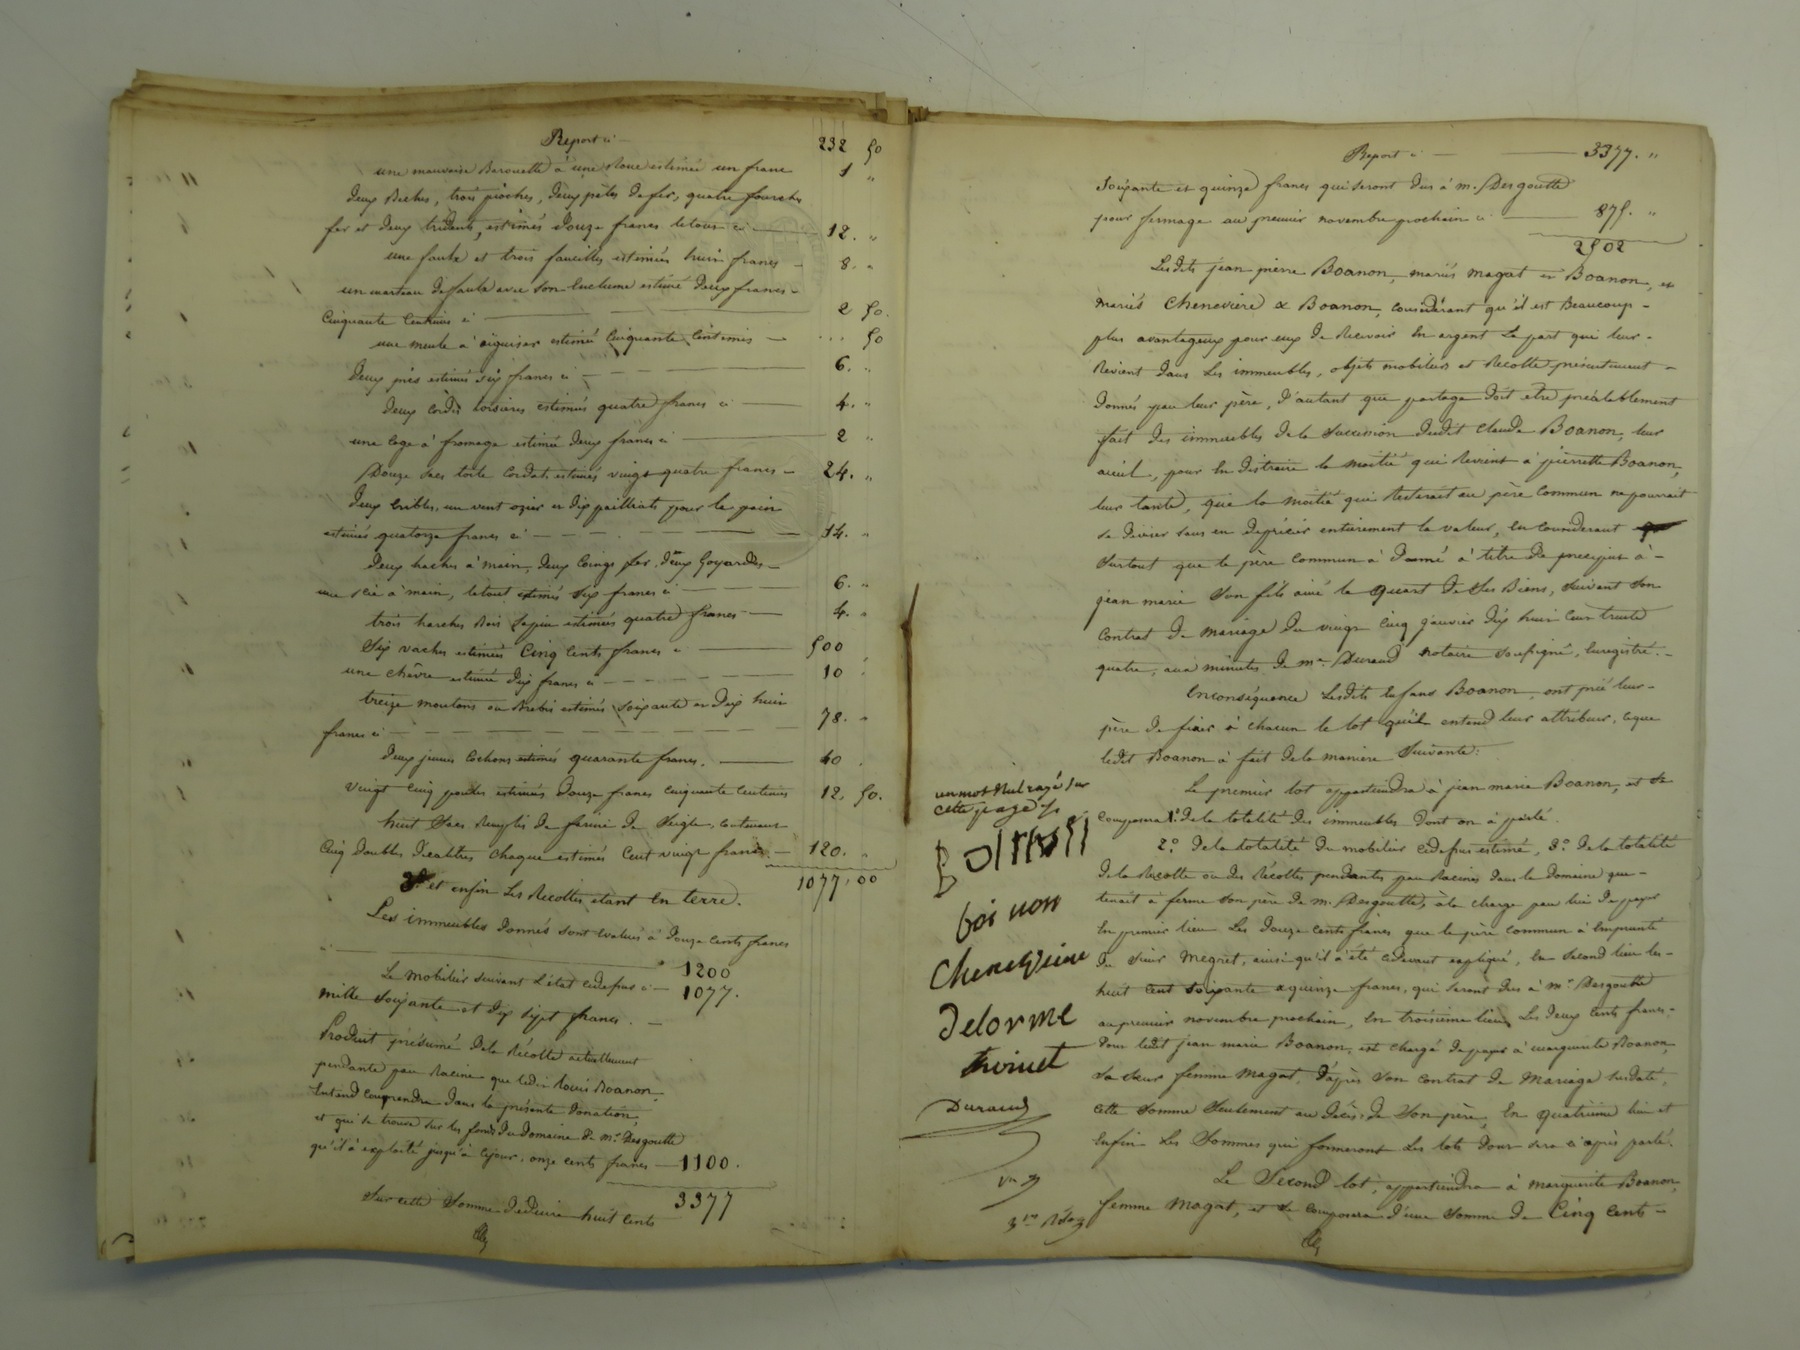 Report ci — 232 50
une mauvaise Barouette à une Roue estimée un franc 1 "
deux Beches, trois pioches, deux pèles de fer, quatre fourches
fer et deux tridents, estimés douze francs letout ci — 12. "
une faulx et trois faucilles estimées huit francs — 8. "
un marteau de faulx avec son Enclume estimé deux francs —
Cinquante Centimes ci — 2 50.
une meule à aiguiser estimée Cinquante Centimes — ... 50
deux estimés six francs ci — 6. "
deux estimées quatre francs ci — 4. "
une cage à fromage estimée deux francs ci — 2 "
Douze sacs toile estimés vingt quatre francs — 24. "
deux Cribles, un vent ozier et dix pailliats pour le pain
estimés quatorze francs ci — 14. "
deux haches à main, deux Coings fer, deux Goyardes —
une scie à main, letout estimés six francs ci — 6. "
trois harches Bois sapin estimées quatre francs — 4. "
Six vaches estimées Cinq Cents francs ci — 500
une chèvre estimée dix francs ci — 10
treize moutons ou Brebis estimés soixante et dix huit
francs ci — 78. "
deux jeunes Cochons estimés quarante francs. — 40
vingt cinq poules estimées douze francs cinquante centimes 12. 50.
huit Sacs remplis de farine de Seigle, contenant
Cinq doubles décalitres chaque estimés Cent vingt francs. — 120. "
1077, 00
3° et enfin Les Recoltes étant En terre.
Les immeubles donnés sont évalués à douze cents francs
ci — 1200
Le mobilier suivant l'état cidessus ci — 1077.
mille soixante et dix sept francs. —
Produit présumé de la Récolte actuellement
pendante par Racine que ledit Louis Boanon,
Entend comprendre dans la présente donation,
et qui se trouve sur les fonds du Domaine de Mr. Desgoutte
qu'il a exploité jusqu'à cejour, onze cents francs — 1100.
3377
Sur cette Somme déduire huit cents
Report ci — 3377. "
Soixante et quinze francs qui seront dus à m. Desgoutte
pour fermage au premier novembre prochain ci — 875. "
2502
Lesdits jean pierre Boanon, mariés magat et Boanon, et
mariés Chenevière & Boanon, considérant qu'il est Beaucoup —
plus avantageux pour eux de Recevoir En argent La part qui leur —
Revient dans Les immeubles, objets mobiliers et Recolte présentement —
donnés par leur père, d'autant que partage doit etre préalablement
fait des immeubles de la succession dudit Claude Boanon, leur
aieul, pour En distraire la moitié qui Revient à pierrette Boanon,
leur tante, que la moitié qui Resterait au père Commun ne pourrait
se diviser sans en déprécier entièrement la valeur, En Considerant
surtout que le père commun à donné à titre de preciput à —
jean marie son fils ainé le quart de ses Biens, suivant son
Contrat de mariage du vingt Cinq janvier dix huit Cent trente
quatre, aux minutes de me. Durand notaire soussigné, Enregistré. —
Enconséquence Lesdits Enfans Boanon, ont prié leur —
père de fixer à chacun le lot qu'il entend leur attribuer, ceque
ledit Boanon à fait de la manière Suivante:
Le premier lot appartiendra à jean marie Boanon, et se
composera 1° de la totalité des immeubles dont on a parlé.
2° de la totalité du mobilier cidessus estimé, 3° de la totalité
de la Recolte ou des Récoltes pendantes par Racines dans le domaine que —
tenait à ferme son père de m. Desgoutte, à la charge par lui de payer
En premier lieu Les douze cents francs que le père commun à Emprunté
du sieur Megret, ainsi qu'il a été cidevant expliqué, En second lieu les —
huit cent soixante & quinze francs, qui seront dus à mr. Desgoutte
au premier novembre prochain, En troisieme lieu Les deux Cents francs —
dont ledit jean marie Boanon, est chargé de payer à marguerite Boanon,
sa sœur femme Magat, d'après son contrat de Mariage susdaté,
cette somme seulement au décès de Son père, En quatrième lieu et
Enfin Les Sommes qui formeront Les lots dont sera ci après parlé.
Le Second lot, appartiendra à marguerite Boanon,
femme Magat, et se Composera d'une somme de Cinq Cents —
un mot Nul rayé sur
cette page
boi non
Cheneviere
Delorme
Durand